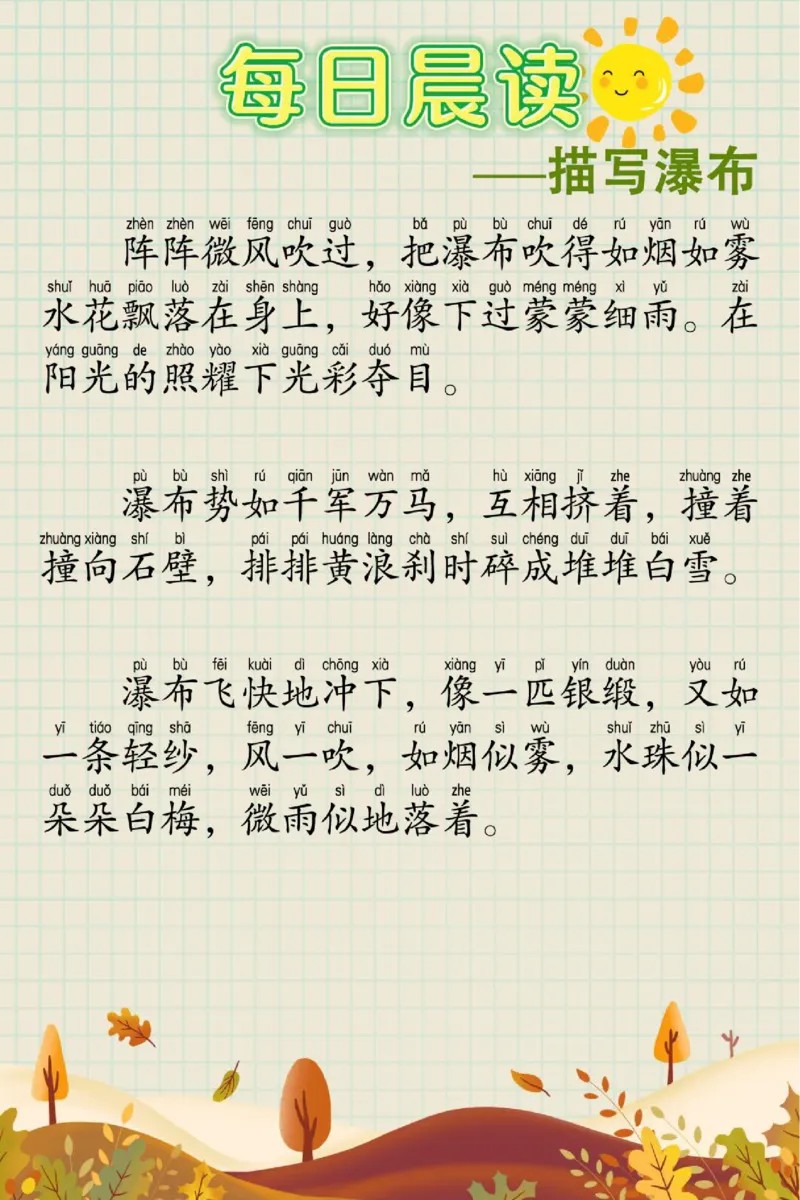 每日晨读
——描写瀑布
zhèn zhèn wēi fēng chuī guò bǎ pù bù chuī dé rú yān rú wù
阵阵微风吹过，把瀑布吹得如烟如雾
shuǐ huā piāo luò zài shēn shàng hǎo xiàng xià guò méng méng xì yǔ zài
水花飘落在身上，好像下过蒙蒙细雨。在
yáng guāng de zhào yào xià guāng cǎi duó mù
阳光的照耀下光彩夺目。
pù bù shì rú qiān jūn wàn mǎ hù xiāng jǐ zhe zhuàng zhe
瀑布势如千军万马，互相挤着，撞着
zhuàng xiàng shí bì pái pái huáng làng chà shí suì chéng duī duī bái xuě
撞向石壁，排排黄浪刹时碎成堆堆白雪。
pù bù fēi kuài dì chōng xià xiàng yī pǐ yín duàn yòu rú
瀑布飞快地冲下，像一匹银缎，又如
yī tiáo qīng shā fēng yī chuī rú yān sì wù shuǐ zhū sì yī
一条轻纱，风一吹，如烟似雾，水珠似一
duǒ duǒ bái méi wēi yǔ sì dì luò zhe
朵朵白梅，微雨似地落着。